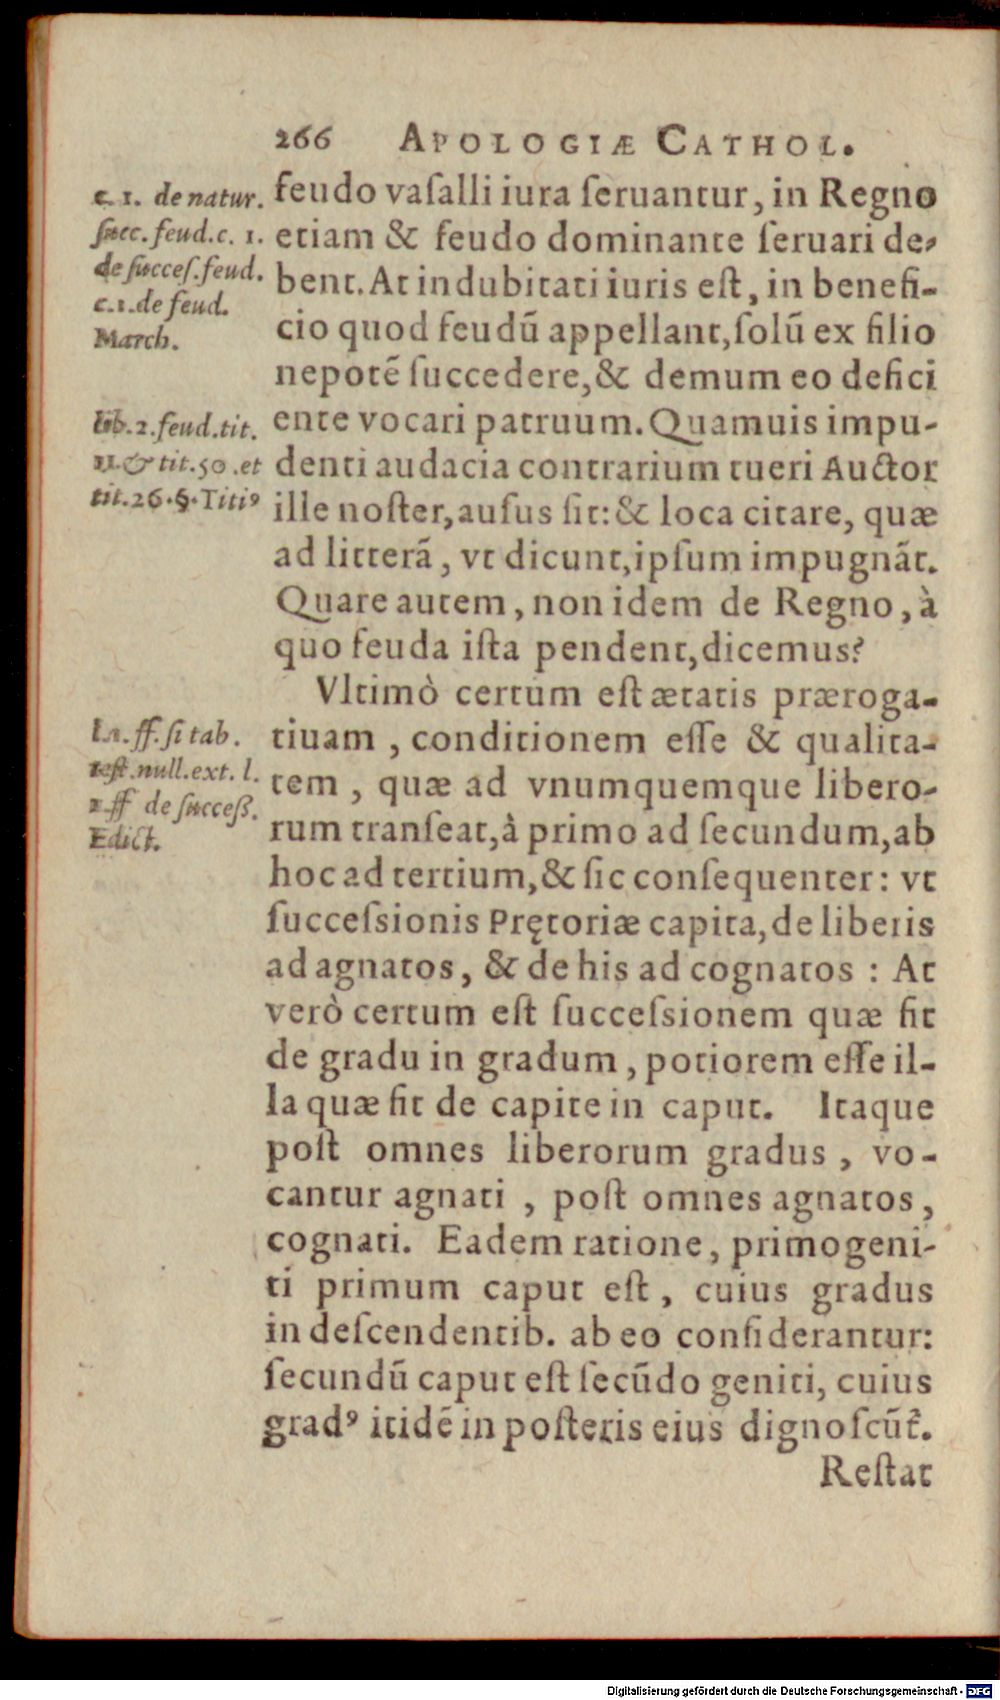 266 APOLOGIÆ CATHOL.
c. 1. de natur.
ſucc. feud. c. 1.
de ſucceſ. feud.
c. 1. de feud.
March.
feudo vaſalli iura ſeruantur, in Regno
etiam & feudo dominante ſeruari de-
bent. At indubitati iuris eſt, in benefi-
cio quod feudū appellant, ſolū ex filio
nepotē ſuccedere, & demum eo defici
lib. 2. feud. tit.
11. & tit. 50. et
tit. 26. §. Titiꝰ
ente vocari patruum. Quamuis impu-
denti audacia contrarium tueri Auctor
ille noſter, auſus ſit: & loca citare, quæ
ad litterã, vt dicunt, ipſum impugnãt.
Quare autem, non idem de Regno, à
quo feuda iſta pendent, dicemus?
Vltimò certum eſt ætatis præroga-
l. 1. ff. ſi tab.
teſt. null. ext. l.
1. ff de ſucceß.
Edict.
tiuam, conditionem eſſe & qualita-
tem, quæ ad vnumquemque libero-
rum tranſeat, à primo ad ſecundum, ab
hoc ad tertium, & ſic conſequenter: vt
ſucceſsionis Prętoriæ capita, de liberis
ad agnatos, & de his ad cognatos: At
verò certum eſt ſucceſsionem quæ fit
de gradu in gradum, potiorem eſſe il-
la quæ fit de capite in caput. Itaque
poſt omnes liberorum gradus, vo-
cantur agnati, poſt omnes agnatos,
cognati. Eadem ratione, primogeni-
ti primum caput eſt, cuius gradus
in deſcendentib. ab eo conſiderantur:
ſecundū caput eſt ſecūdo geniti, cuius
gradꝰ itidē in poſteris eius dignoſcūt᷑.
Reſtat
Digitalisierung gefördert durch die Deutsche Forschungsgemeinschaft - DFG